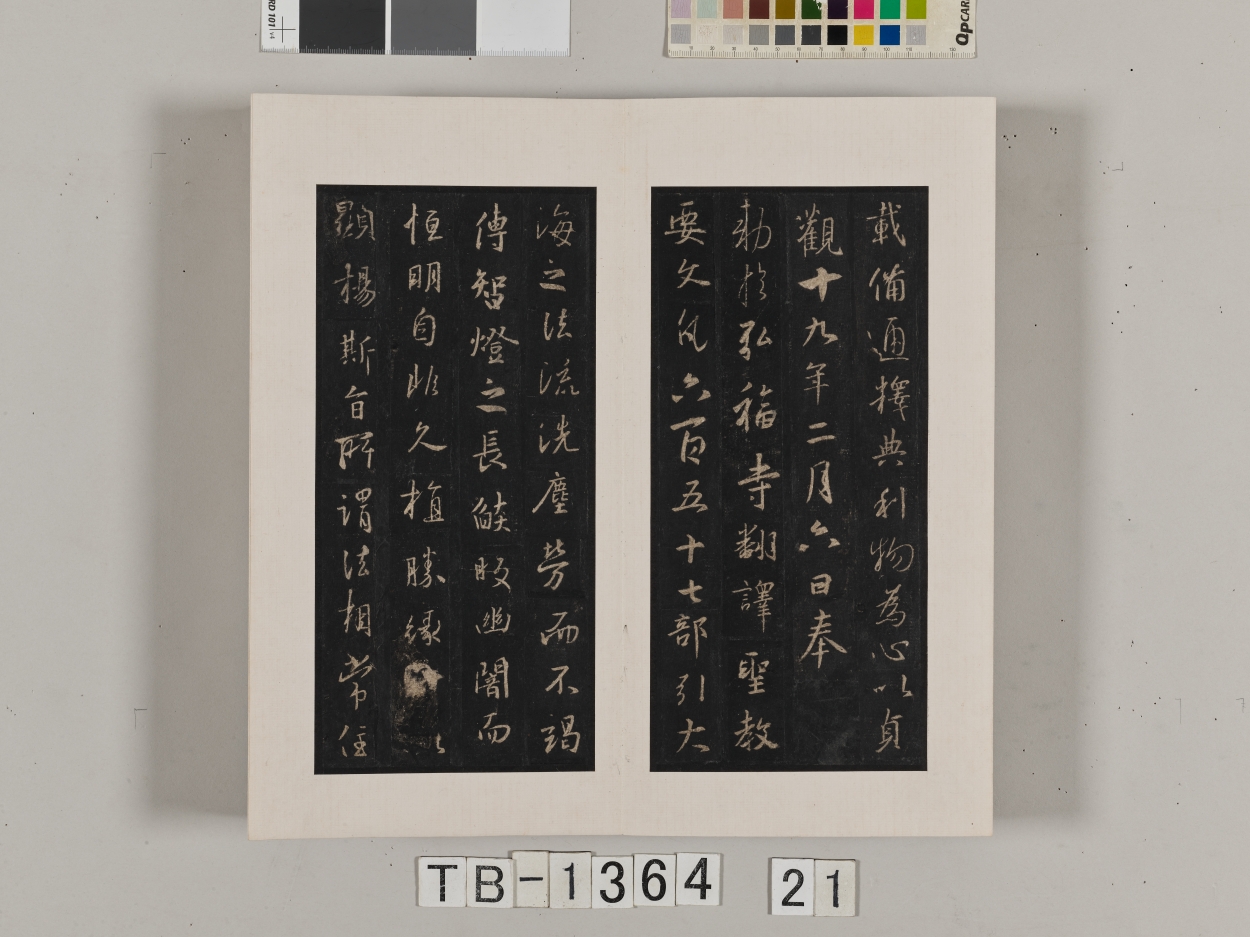 載備通釋典利物為心以貞
觀十九年二月六日奉
勑於弘福寺翻譯聖教
要文凡六百五十七部引大
海之法流洗塵勞而不竭
傳智燈之長燄皎幽闇而
恒明自非久植勝緣
顯揚斯旨所謂法相常住
TB-1364 21
QPCAR
RD 101 v4